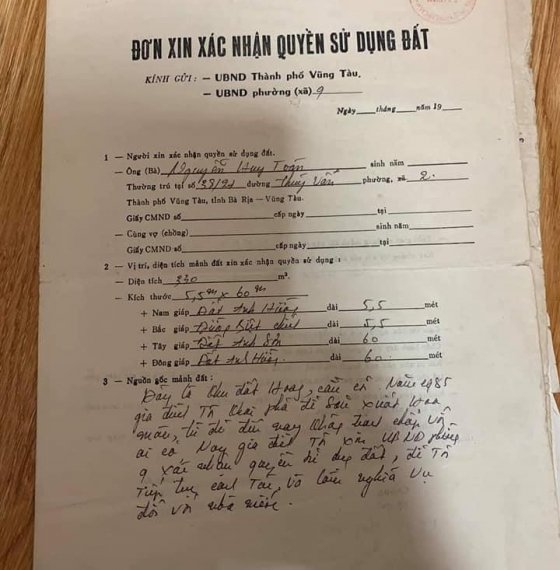 ĐƠN XIN XÁC NHẬN QUYỀN SỬ DỤNG ĐẤT
KÍNH GỬI: — UBND Thành phố Vũng Tàu,
— UBND phường (xã) 9
Ngày tháng năm 19
1 — Người xin xác nhận quyền sử dụng đất.
— Ông (Bà) Nguyễn Huy Toàn sinh năm
Thường trú tại số đường Thùy Vân phường, xã 2.
Thành phố Vũng Tàu, tỉnh Bà Rịa – Vũng Tàu.
Giấy CMND số cấp ngày tại
— Cùng vợ (chồng) sinh năm
Giấy CMND số cấp ngày tại
2 — Vị trí, diện tích mảnh đất xin xác nhận quyền sử dụng :
— Diện tích 330 m².
— Kích thước 5,5m x 60m
+ Nam giáp Đất Anh Hùng dài 5,5 mét
+ Bắc giáp dài 5,5 mét
+ Tây giáp Đất Anh Sơn dài 60 mét
+ Đông giáp Đất Anh Hùng. dài 60. mét
3 — Nguồn gốc mảnh đất :
Đây là khu đất Hoang, cằn cỗi Năm 1985
gia đình Tôi Khai phá để Sản xuất Hoa
màu, từ đó đến nay không tranh chấp với
ai cả Nay gia đình Tôi xin UBND phường
9 xác nhận quyền sử dụng đất, để Tôi
Tiếp tục canh Tác, và làm nghĩa vụ
đối với nhà nước.